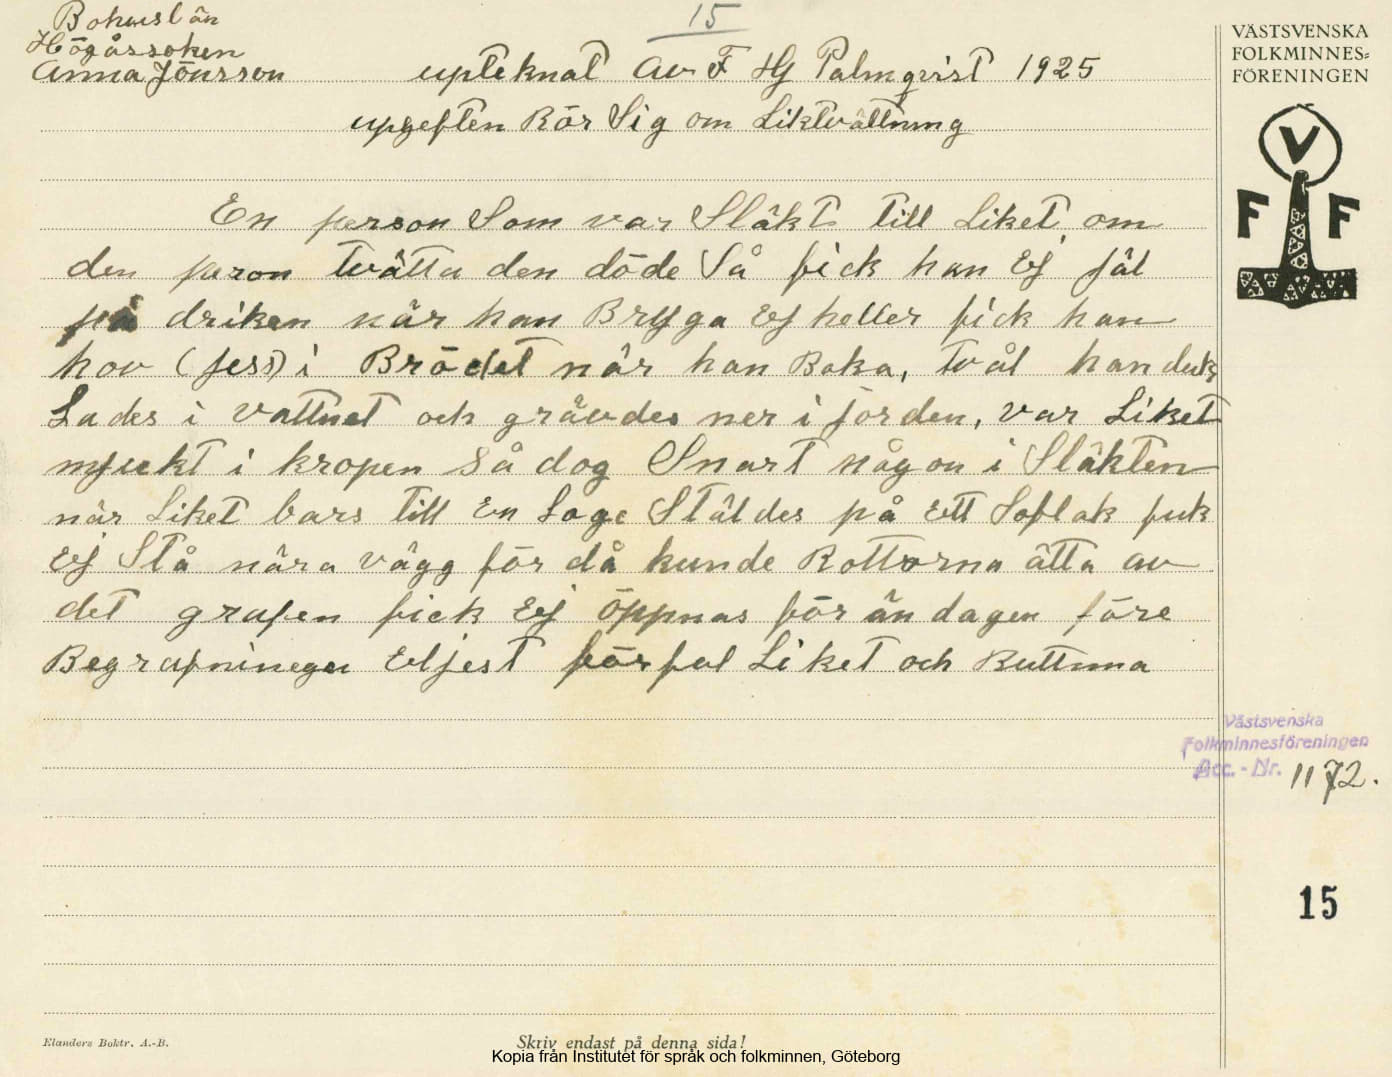 15
Bohuslän
Högåssoken
Anna Jönsson
upteknat Av F Hj Palmqvist 1925
upgeften Rör Sig om Liktvättning
En person Som var Släkt till Liket om
den peron tvätta den döde Så fick han Ej jäl
på driken när han Bryga Ej heller fick han
hov (jess) i Brödet när han Baka, tvål handuk
Lades i vattnet och grävdes ner i jorden, var Liket
mjuekt i kropen så dog Snart någon i Släkten
när Liket bars till En Loge Stäldes på Ett Loflak fuk
Ej Stå nära vägg för då kunde Rottorna ätta av
det grafen fick Ej öppnas för än dagen före
Begrafninegen Eljest förful Liket och Ruttnna
VÄSTSVENSKA
FOLKMINNES=
FÖRENINGEN
V
F F
Västsvenska
Folkminnesföreningen
Acc. - Nr. 1172.
15
Elanders Boktr. A.-B.
Skriv endast på denna sida!
Kopia från Institutet för språk och folkminnen, Göteborg